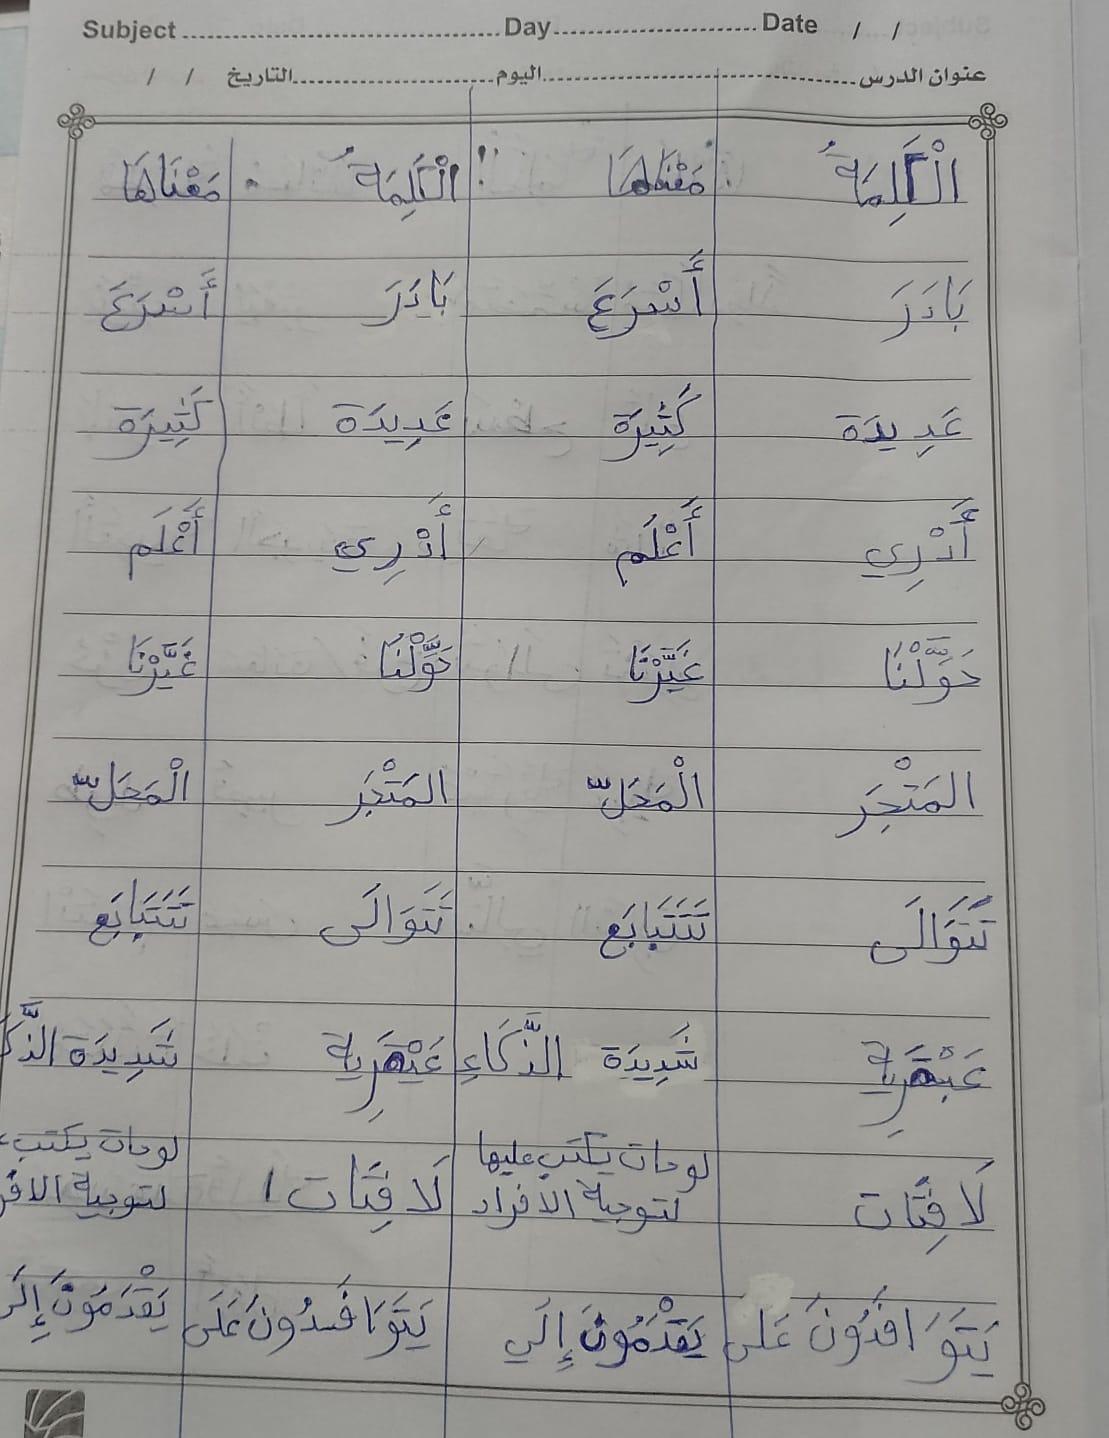 Subject ........ Day ........ Date / /
عنوان الدرس ........ اليوم ........ التاريخ / /
الْكَلِمَةُ مَعْنَاهَا الْكَلِمَةُ مَعْنَاهَا
بَادَرَ أَسْرَعَ بَادَرَ أَسْرَعَ
عَدِيدَة كَثِيرَة عَدِيدَة كَثِيرَة
أَدْرِي أَعْلَم أَدْرِي أَعْلَم
حَوَّلْنَا غَيَّرْنَا حَوَّلْنَا غَيَّرْنَا
المَتْجَر الْمَحَلّ المَتْجَر الْمَحَلّ
تَتَوَالَى تَتَتَابَع تَتَوَالَى تَتَتَابَع
عَبْقَرِية شَدِيدَة الذَّكَاءِ عَبْقَرِية شَدِيدَة
لَافِتَات لوحات يكتب عليها لَافِتَات لوحات يكتب
لتوجية الافراد لتوجية
يَتَوَافَدُونَ عَلَى يَقْدَمُونَ إِلَي يَتَوَافَدُونَ عَلَى يَقْدَمُونَ